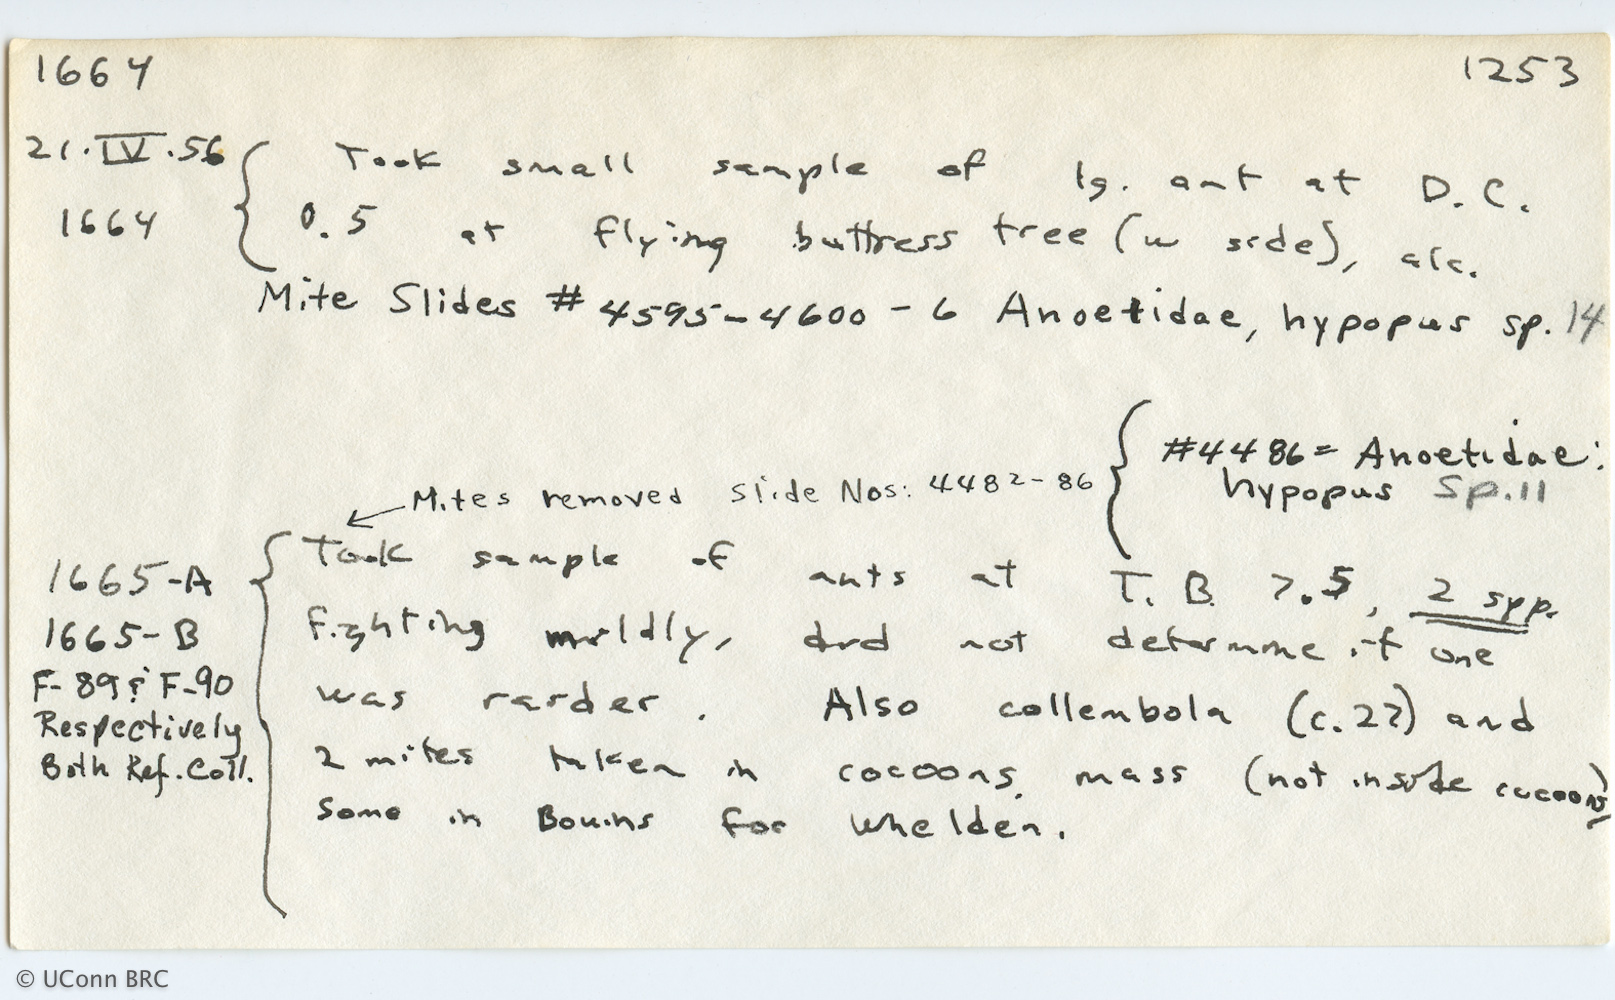 1664 1253
21.IV.56 Took small sample of lg. ant at D.C.
1664 0.5 at flying buttress tree (w side), alc.
Mite Slides # 4595-4600 - 6 Anoetidae, hypopus sp. 14
#4486 = Anoetidae:
hypopus Sp. 11
Mites removed slide Nos: 4482-86
Took sample of ants at T. B. 7.5, 2 spp.
1665-A
fighting mildly, did not determine if one
1665-B
was raider. Also collembola (c. 2?) and
F-89 & F-90
Respectively
2 mites taken in cocoons mass (not inside cocoons)
Both Ref. Coll.
Some in Bouins for Whelden.
© UConn BRC